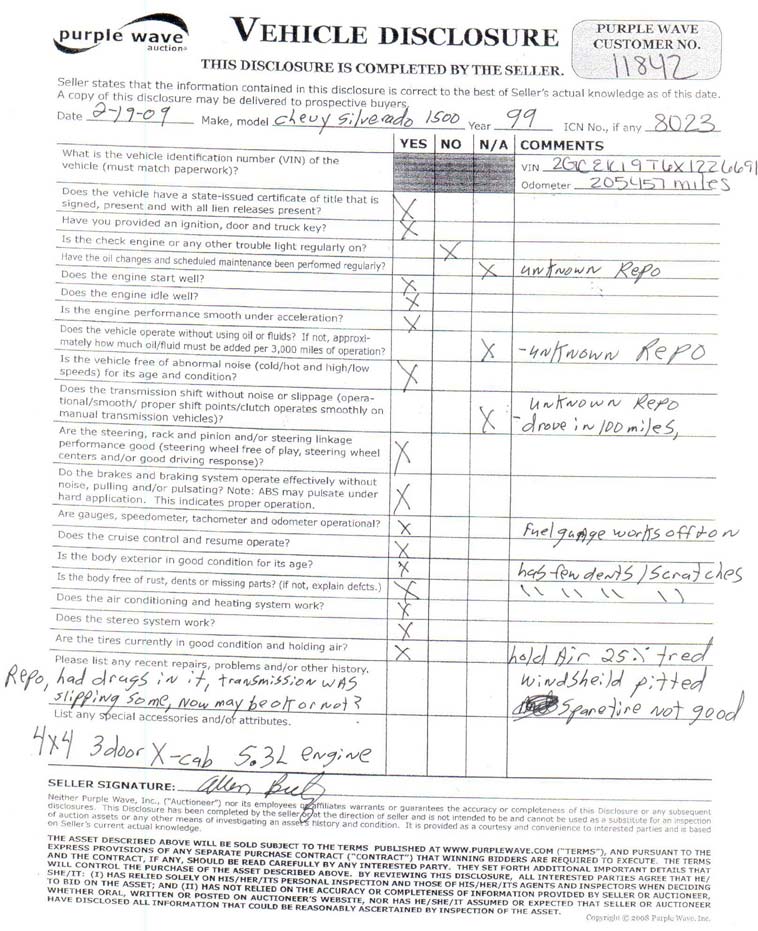 purple wave
auction®
VEHICLE DISCLOSURE
PURPLE WAVE
CUSTOMER NO.
11842
THIS DISCLOSURE IS COMPLETED BY THE SELLER.
Seller states that the information contained in this disclosure is correct to the best of Seller's actual knowledge as of this date.
A copy of this disclosure may be delivered to prospective buyers.
Date 2-19-09 Make, model Chevy Silverado 1500 Year 99 ICN No., if any 8023
YES NO N/A COMMENTS
What is the vehicle identification number (VIN) of the
vehicle (must match paperwork)?
VIN 2GCEK19T6X1226691
Odometer 205457 miles
Does the vehicle have a state-issued certificate of title that is
signed, present and with all lien releases present? X
Have you provided an ignition, door and truck key? X
Is the check engine or any other trouble light regularly on? X
Have the oil changes and scheduled maintenance been performed regularly? X unknown Repo
Does the engine start well? X
Does the engine idle well? X
Is the engine performance smooth under acceleration? X
Does the vehicle operate without using oil or fluids? If not, approxi-
mately how much oil/fluid must be added per 3,000 miles of operation? X -unknown Repo
Is the vehicle free of abnormal noise (cold/hot and high/low
speeds) for its age and condition? X
Does the transmission shift without noise or slippage (opera-
tional/smooth/ proper shift points/clutch operates smoothly on
manual transmission vehicles)? X
unknown Repo
-drove in 100 miles,
Are the steering, rack and pinion and/or steering linkage
performance good (steering wheel free of play, steering wheel
centers and/or good driving response)? X
Do the brakes and braking system operate effectively without
noise, pulling and/or pulsating? Note: ABS may pulsate under
hard application. This indicates proper operation. X
Are gauges, speedometer, tachometer and odometer operational? X fuel guage works off+on
Does the cruise control and resume operate? X
Is the body exterior in good condition for its age? X has few dents/scratches
Is the body free of rust, dents or missing parts? (if not, explain defcts.) X \\ \\ \\ \\
Does the air conditioning and heating system work? X
Does the stereo system work? X
Are the tires currently in good condition and holding air? X hold Air 25% tred
Please list any recent repairs, problems and/or other history.
Repo, had drugs in it, transmission was
slipping some, now may be ok or not?
windsheild pitted
Spare tire not good
List any special accessories and/or attributes.
4x4 3door X-cab 5.3L engine
SELLER SIGNATURE: Allen
Neither Purple Wave, Inc., ("Auctioneer") nor its employees or affiliates warrants or guarantees the accuracy or completeness of this Disclosure or any subsequent
disclosures. This Disclosure has been completed by the seller or at the direction of seller and is not intended to be and cannot be used as a substitute for an inspection
of auction assets or any other means of investigating an assets history and condition. It is provided as a courtesy and convenience to interested parties and is based
on Seller's current actual knowledge.
THE ASSET DESCRIBED ABOVE WILL BE SOLD SUBJECT TO THE TERMS PUBLISHED AT WWW.PURPLEWAVE.COM ("TERMS"), AND PURSUANT TO THE
EXPRESS PROVISIONS OF ANY SEPARATE PURCHASE CONTRACT ("CONTRACT") THAT WINNING BIDDERS ARE REQUIRED TO EXECUTE. THE TERMS
AND THE CONTRACT, IF ANY, SHOULD BE READ CAREFULLY BY ANY INTERESTED PARTY. THEY SET FORTH ADDITIONAL IMPORTANT DETAILS THAT
WILL CONTROL THE PURCHASE OF THE ASSET DESCRIBED ABOVE. BY REVIEWING THIS DISCLOSURE, ALL INTERESTED PARTIES AGREE THAT HE/
SHE/IT: (I) HAS RELIED SOLELY ON HIS/HER/ITS PERSONAL INSPECTION AND THOSE OF HIS/HER/ITS AGENTS AND INSPECTORS WHEN DECIDING
TO BID ON THE ASSET; AND (II) HAS NOT RELIED ON THE ACCURACY OR COMPLETENESS OF INFORMATION PROVIDED BY SELLER OR AUCTIONEER,
WHETHER ORAL, WRITTEN OR POSTED ON AUCTIONEER'S WEBSITE, NOR HAS HE/SHE/IT ASSUMED OR EXPECTED THAT SELLER OR AUCTIONEER
HAVE DISCLOSED ALL INFORMATION THAT COULD BE REASONABLY ASCERTAINED BY INSPECTION OF THE ASSET.
Copyright © 2008 Purple Wave, Inc.